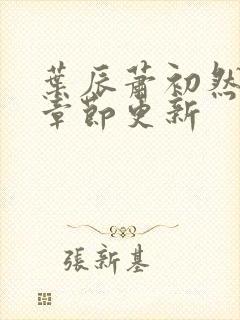 葉辰蕭初然
章節更新
張新基